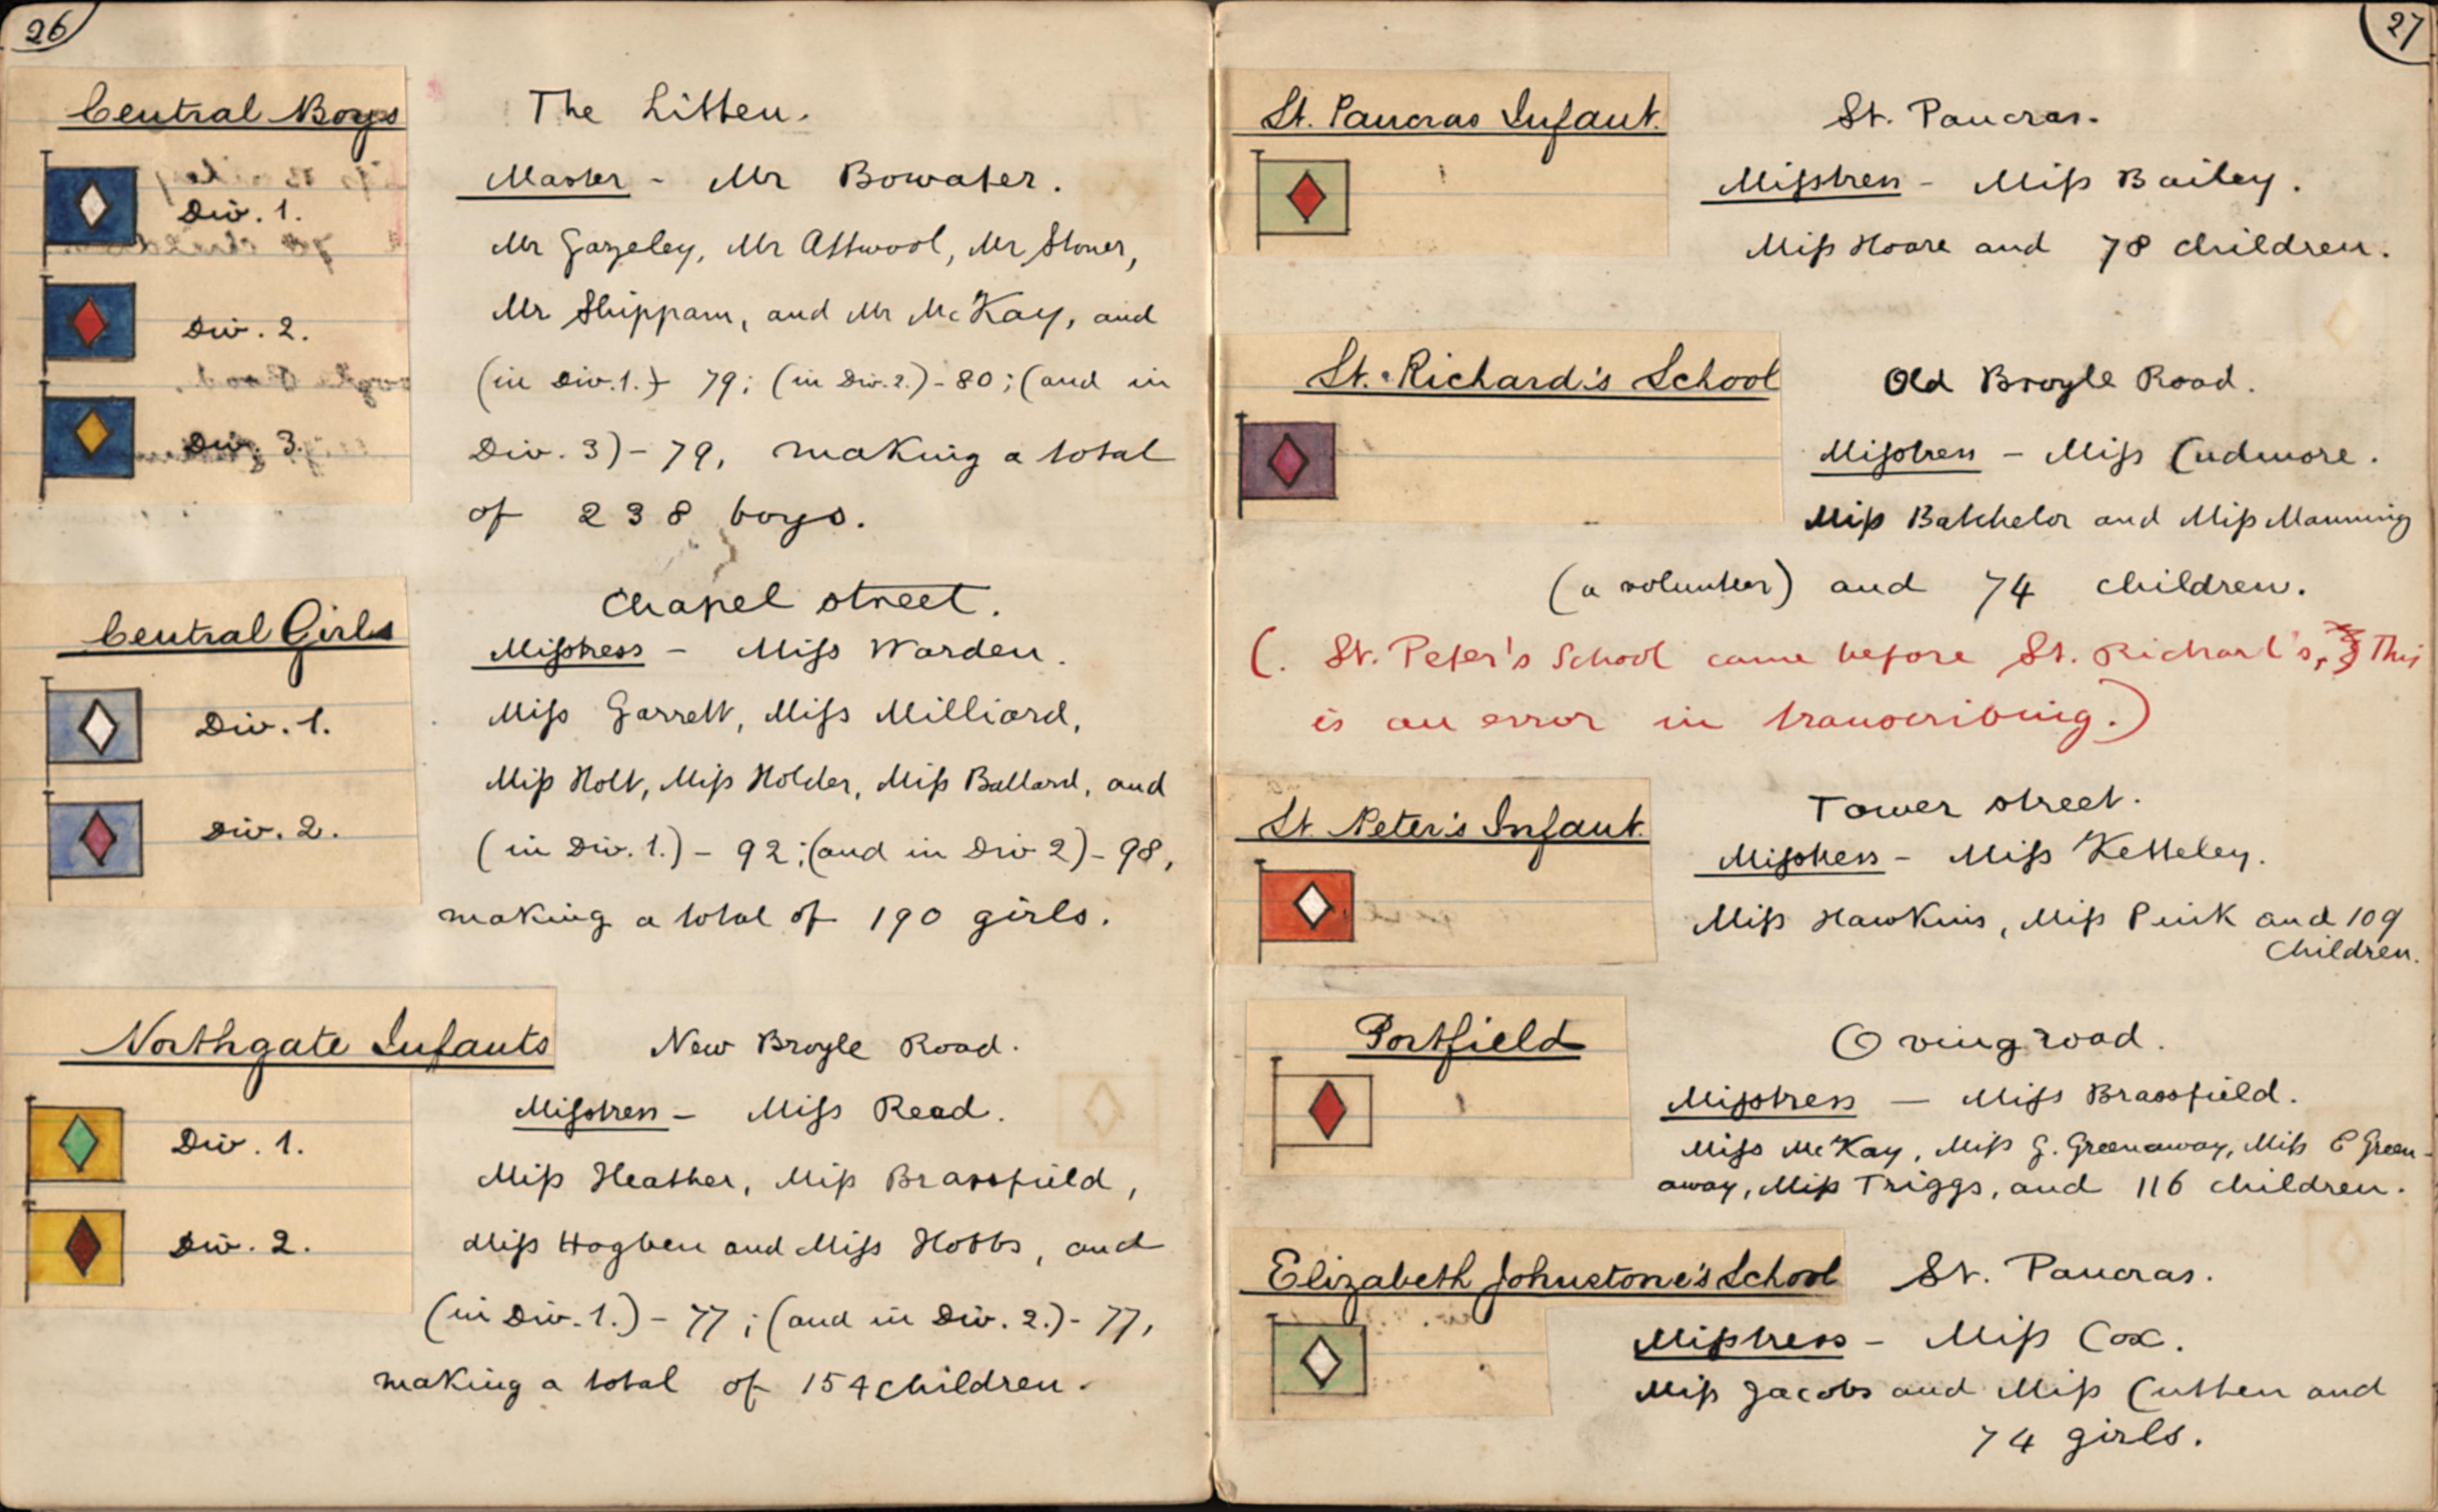 26
Central Boys
The Litten.
Div. 1.
Div. 2.
Div. 3.
Master - Mr Bowater.
Mr Gazeley, Mr Attwool, Mr Stoner,
Mr Shippam, and Mr McKay, and
(in Div. 1.) - 79; (in Div. 2.) - 80; (and in
Div. 3) - 79, making a total
of 238 boys.
Central Girls
Chapel street.
Div. 1.
Div. 2.
Mistress - Miss Warden.
Miss Garrett, Miss Milliard,
Miss Holt, Miss Holder, Miss Ballard, and
(in Div. 1.) - 92; (and in Div 2) - 98,
making a total of 190 girls.
Northgate Infants
New Broyle Road.
Div. 1.
Div. 2.
Mistress - Miss Read.
Miss Heather, Miss Brassfield,
Miss Hogben and Miss Hobbs, and
(in Div. 1.) - 77; (and in Div. 2.) - 77,
making a total of 154 children.
27
St. Pancras Infant.
St. Pancras.
Mistress - Miss Bailey.
Miss Hoare and 78 children.
St. Richard's School
Old Broyle Road.
Mistress - Miss Cudmore.
Miss Batchelor and Miss Manning
(a volunteer) and 74 children.
(. St. Peter's School came before St. Richard's, This
is an error in transcribing.)
St Peter's Infant.
Tower street.
Mistress - Miss Ketteley.
Miss Hawkins, Miss Pink and 109
Children.
Portfield
Oving road.
Mistress — Miss Brassfield.
Miss McKay, Miss G. Greenaway, Miss E Green-
away, Miss Triggs, and 116 children.
Elizabeth Johnstone's School
St. Pancras.
Mistress - Miss Cox.
Miss Jacobs and Miss Cutten and
74 girls.